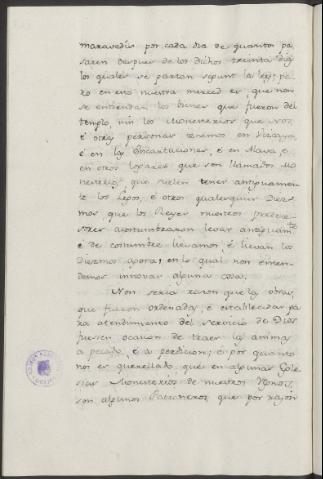 maravedis por cada dia de quantos pa
saren despues de los dichos treinta dias
los quales se partan segunt la ley: pe
ro en esto nuestra merced es, que non
se entiendan los bienes que fueron del
templo, nin los Monesterios que nos,
é otras personas tenemos en Vizcaya,
é en las Encartaciones, é en Alava, é
en otros logares que son llamados Mo
nesterios, que suelen tener antiguamen
te los legos, é otros qualesquier Diez
mos que los Reyes nuestros predece
sores acostumbraron levar antiguamte
é de costumbre llevamos, é llevan los
Diezmos agora; en lo qual non enten
demos innovar alguna cosa.
Non seria razon que las obras,
que fueron ordenadas, é establecidas pa
ra atendimiento del servicio de Dios
fuesen ocasion de traer las animas
a pecado, é a perdicion; é por quanto
nos es querellado que en algunas Igle
sias Monesterios de nuestros Regnos,
son algunos Patroneros que por razon